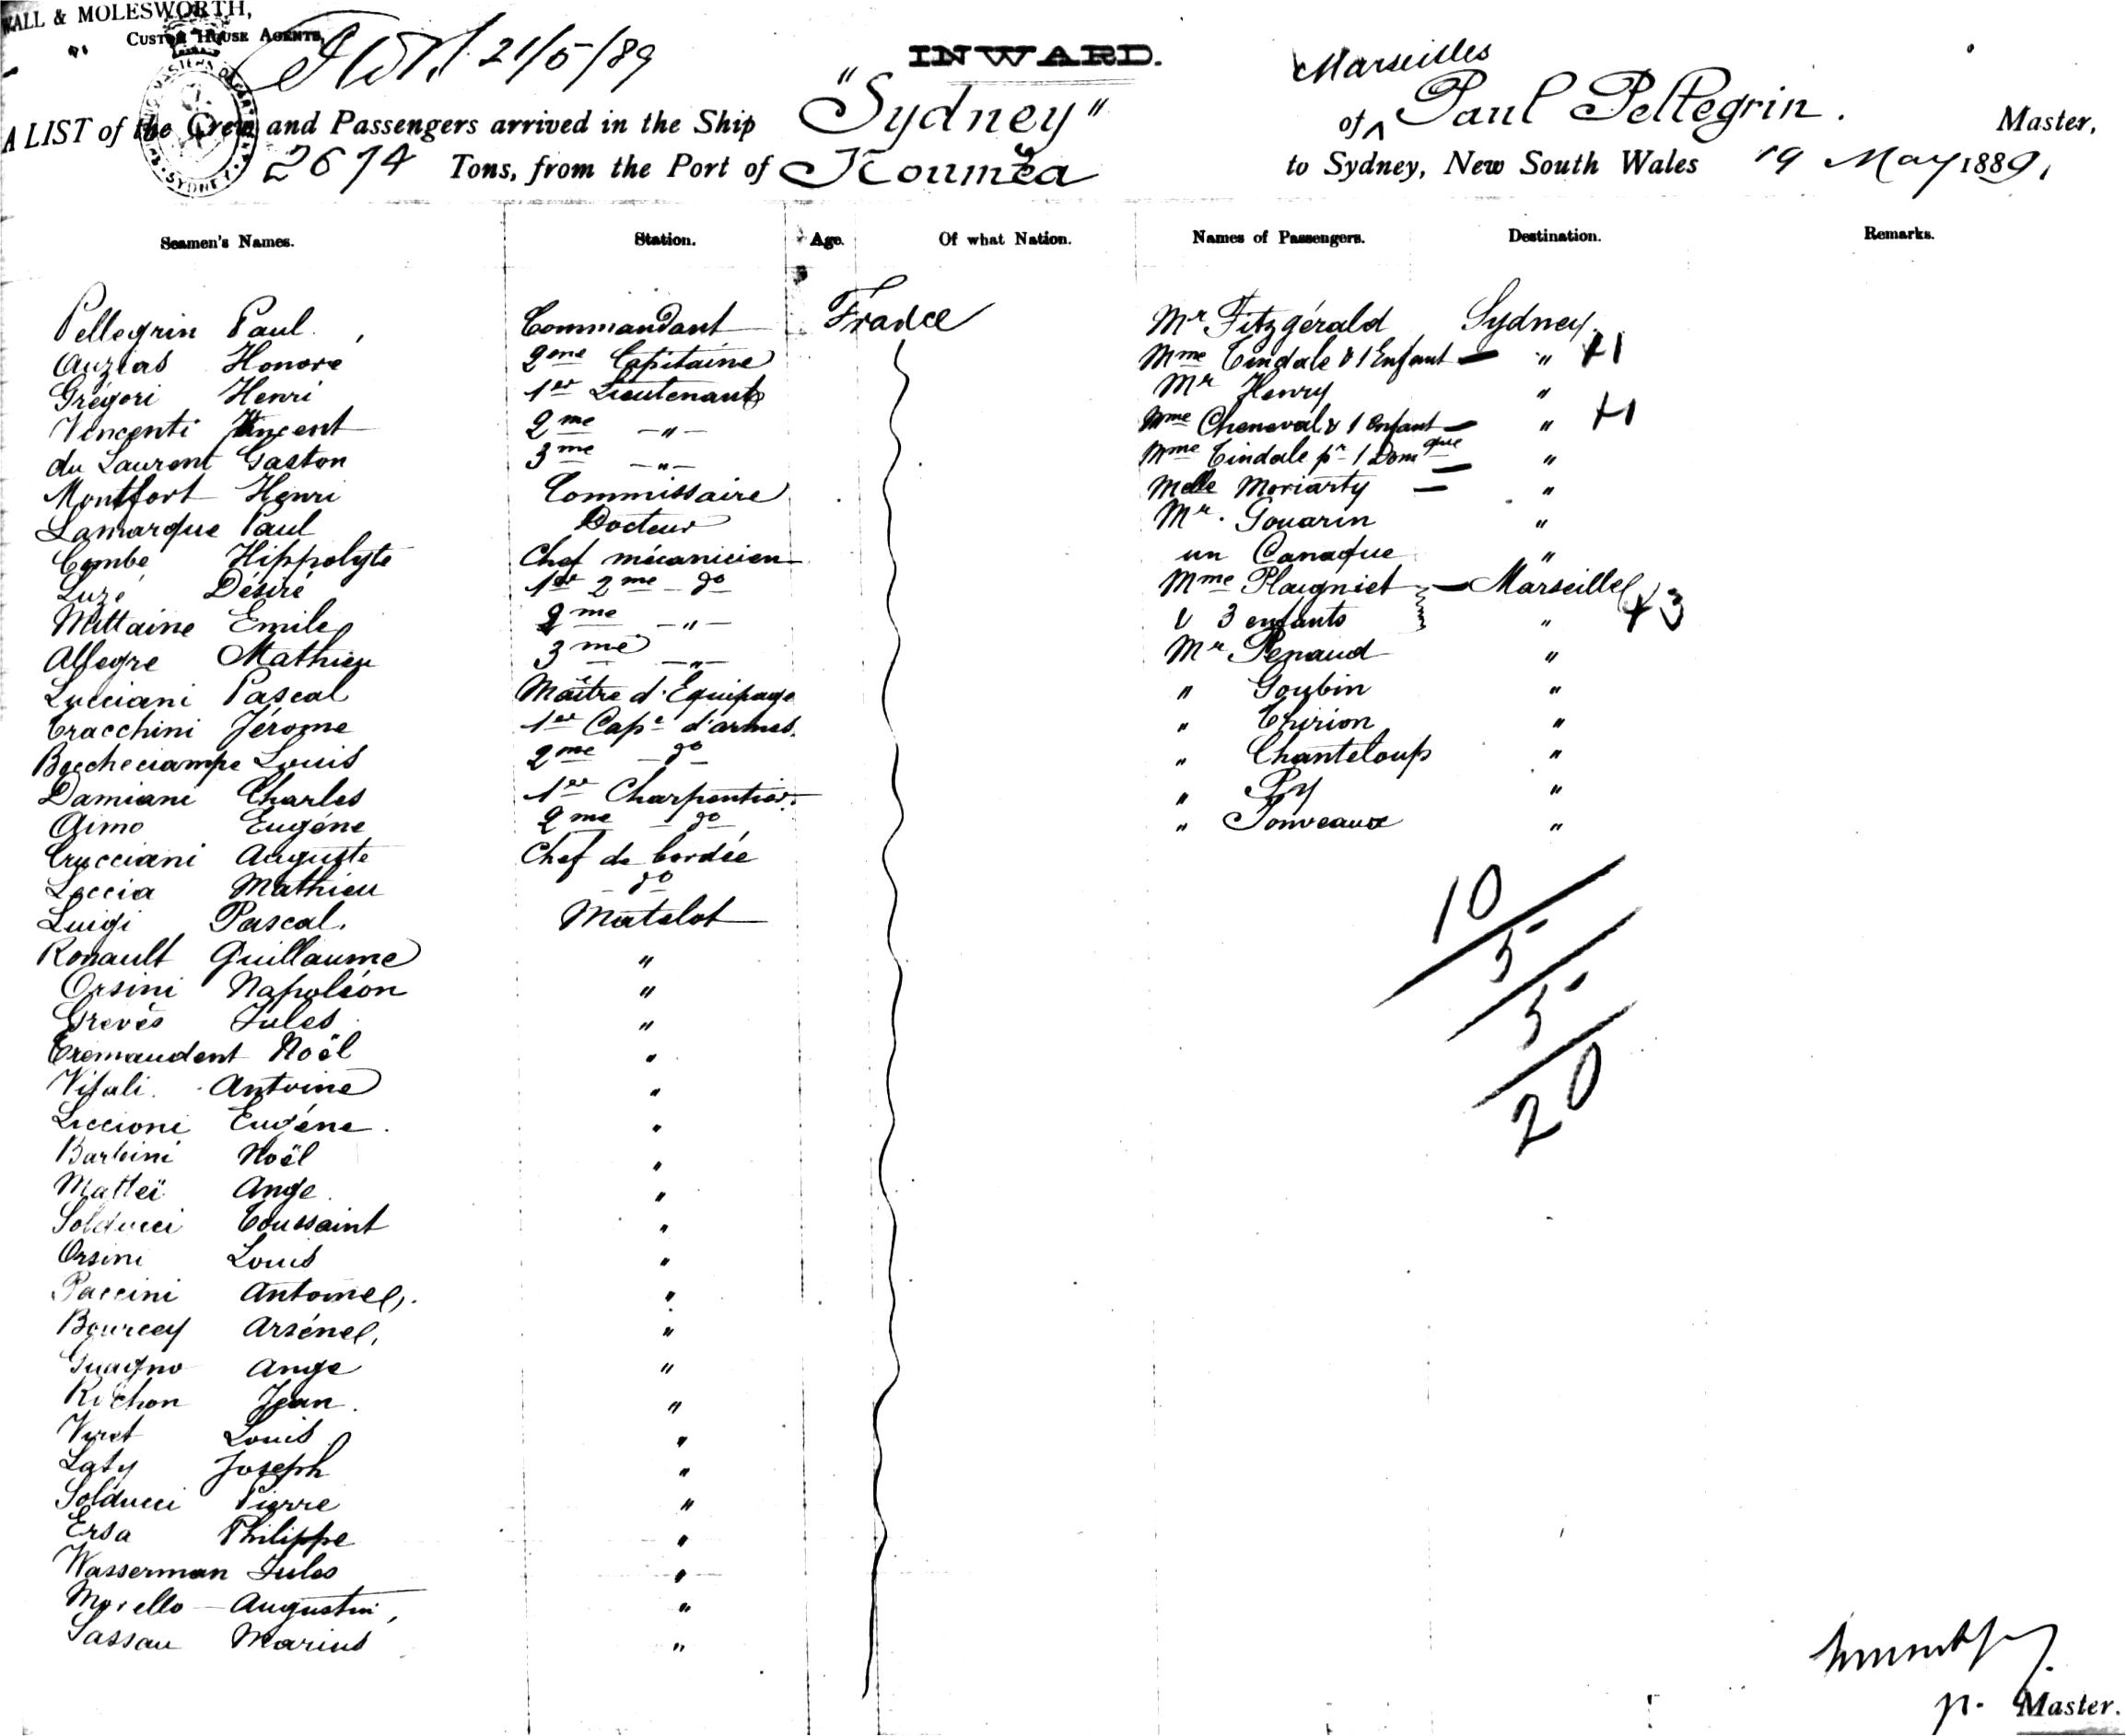 WALL & MOLESWORTH,
CUSTOM HOUSE AGENTS,
21/5/89
INWARD.
Marseilles
A LIST of the Crew and Passengers arrived in the Ship "Sydney" of Paul Pellegrin. Master,
2674 Tons, from the Port of Nouméa to Sydney, New South Wales 19 May 1889,
Seamen's Names. Station. Age. Of what Nation. Names of Passengers. Destination. Remarks.
Pellegrin Paul. Commandant France Mr Fitzgérald Sydney.
Auzias Honoré 2me Capitaine Mme Tindale & 1 Enfant — " +1
Grégori Henri 1er Lieutenant Mr Henry "
Vincenti Vincent 2me —"— Mme Cheneval & 1 Enfant — " +1
du Laurent Gaston 3me —"— Mme Tindale pr 1 Domque — "
Montfort Henri Commissaire Melle Moriarty — "
Lamarque Paul Docteur Mr. Gouarin "
Combe Hippolyte Chef mécanicien un Canaque "
Luzé Désiré 1er 2me do Mme Plaigniet — Marseille
Mittaine Emile 2me —"— & 3 enfants " +3
Allegre Mathieu 3me —"— Mr Penaud "
Lucciani Pascal Maître d'Equipage " Goubin "
Tracchini Jérome 1er Cape d'armes. " Thirion "
Boccheciampe Louis 2me — do " Chanteloup "
Damiani Charles 1er Charpentier. " Py "
Aimo Eugéne 2me — do " Jonveaux "
Crucciani Auguste Chef de bordée
Leccia Mathieu — do
Luigi Pascal. Matelot
Ronault Guillaume "
Orsini Napoléon "
Grevés Jules "
Tremaudent Noël "
Vitali. Antoine "
Liccioni Eugéne. "
Barbini Noël "
Matteï Ange. "
Solducci Toussaint "
Orsini Louis "
Paccini Antoine "
Bourcey Arséne "
Guagno Ange "
Richon Jean. "
Viret Louis "
Laty Joseph "
Solducci Pierre "
Ersa Philippe "
Wasserman Jules "
Morello — Augustin "
Sassau Marius "
10
5
5
20
p. Master.